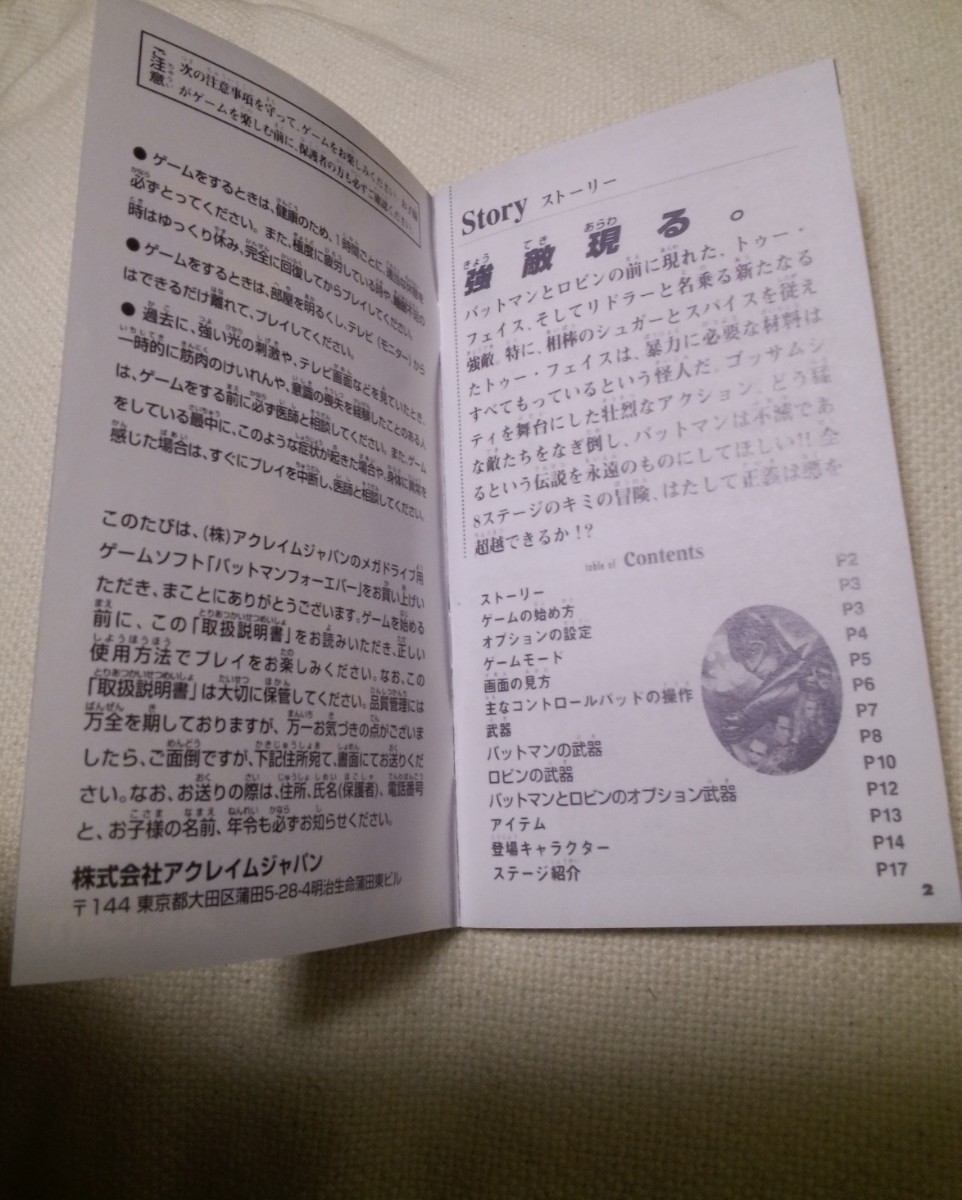 ご注意
次の注意事項を守って、ゲームをお楽しみください。お子様
がゲームを楽しむ前に、保護者の方も必ずご確認ください。
● ゲームをするときは、健康のため、1時間ごとに、
必ずとってください。また、極度に疲労している時や、睡眠不足の
時はゆっくり休み、完全に回復してからプレイしてください。
● ゲームをするときは、部屋を明るくし、テレビ(モニター)から
はできるだけ離れて、プレイしてください。
● 過去に、強い光の刺激や、テレビ画面などを見ていたとき、
一時的に筋肉のけいれんや、意識の喪失を経験したことのある人
は、ゲームをする前に必ず医師と相談してください。また、ゲーム
をしている最中に、このような症状が起きた場合や、身体に異常を
感じた場合は、すぐにプレイを中断し、医師と相談してください。
このたびは、(株)アクレイムジャパンのメガドライブ用
ゲームソフト「バットマンフォーエバー」をお買い上げい
ただき、まことにありがとうございます。ゲームを始める
前に、この「取扱説明書」をお読みいただき、正しい
使用方法でプレイをお楽しみください。なお、この
「取扱説明書」は大切に保管してください。品質管理には
万全を期しておりますが、万一お気づきの点がございま
したら、ご面倒ですが、下記住所宛て、書面にてお送りくだ
さい。なお、お送りの際は、住所、氏名(保護者)、電話番号
と、お子様の名前、年令も必ずお知らせください。
株式会社アクレイムジャパン
〒144 東京都大田区蒲田5-28-4明治生命蒲田東ビル
Story ストーリー
強敵現る。
バットマンとロビンの前に現れた、トゥー・
フェイス、そしてリドラーと名乗る新たなる
強敵。特に、相棒のシュガーとスパイスを従え
たトゥー・フェイスは、暴力に必要な材料は
すべてもっているという怪人だ。ゴッサムシ
ティを舞台にした壮烈なアクション。どう猛
な敵たちをなぎ倒し、バットマンは不滅であ
るという伝説を永遠のものにしてほしい!! 全
8ステージのキミの冒険、はたして正義は悪を
超越できるか!?
table of Contents
ストーリー P2
ゲームの始め方 P3
オプションの設定 P3
ゲームモード P4
画面の見方 P5
主なコントロールパッドの操作 P6
武器 P7
バットマンの武器 P8
ロビンの武器 P10
バットマンとロビンのオプション武器 P12
アイテム P13
登場キャラクター P14
ステージ紹介 P17
2